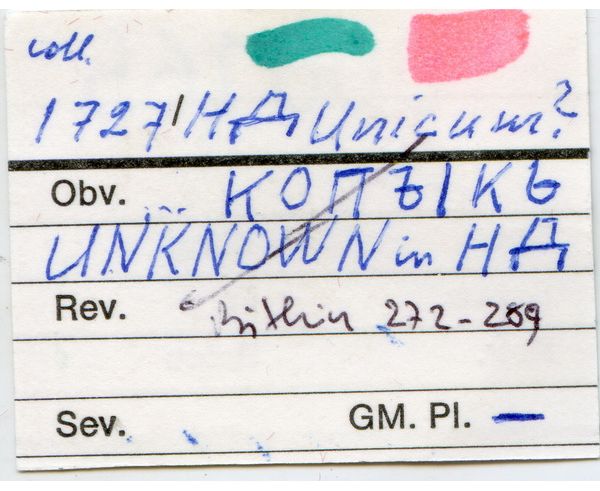 coll.
1727/НД Unicum?
Obv. КОПЪIКЬ
UNKNOWN in НД
Rev. 272-289
Sev. GM. Pl. —